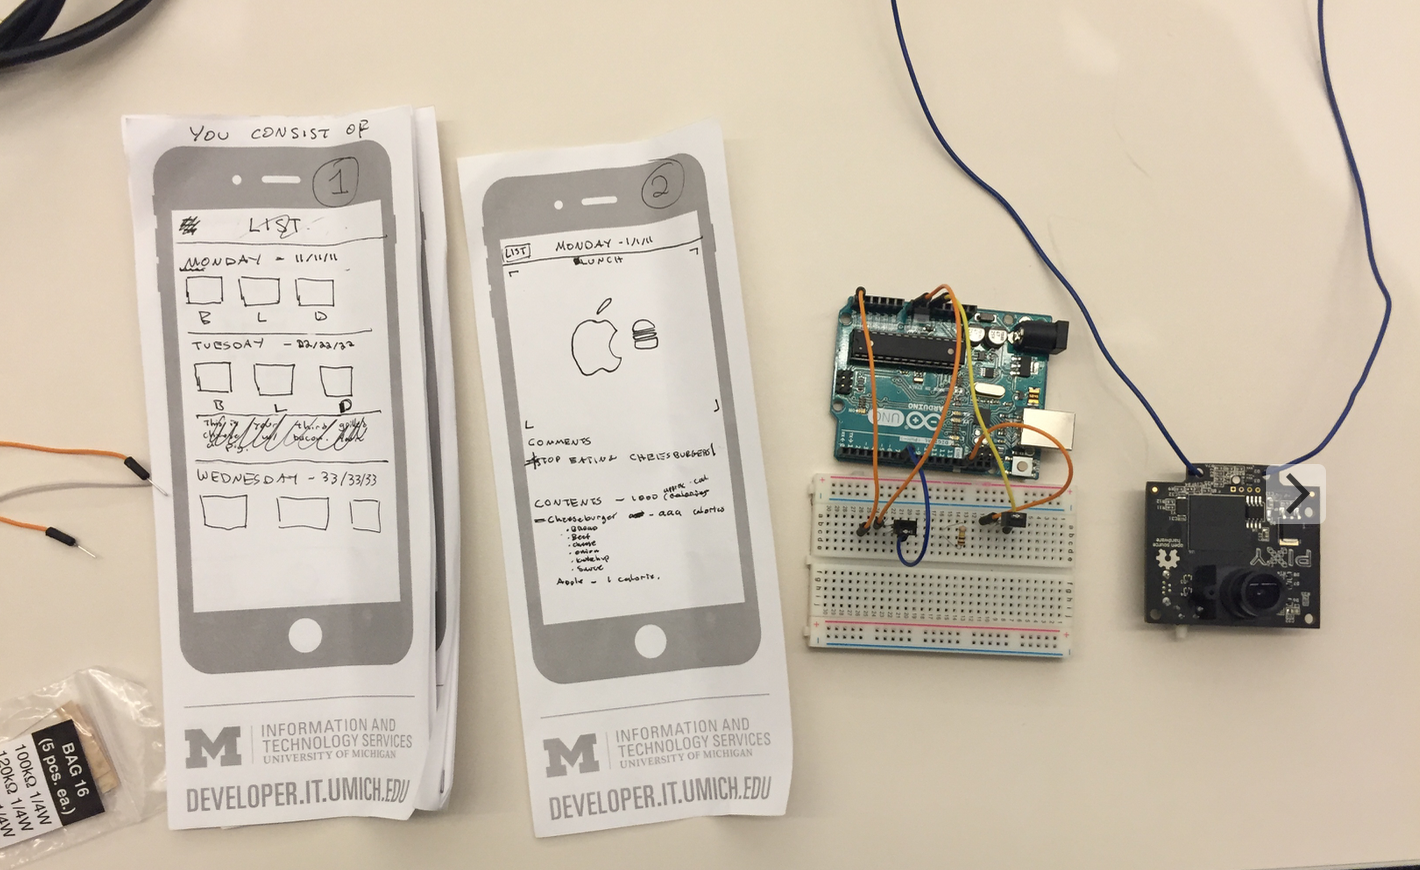 YOU CONSIST OF
1
LIST
MONDAY - 11/11/11
B L D
TUESDAY - 22/22/22
B L D
This is your third
bacon.
WEDNESDAY - 33/33/33
M INFORMATION AND
TECHNOLOGY SERVICES
UNIVERSITY OF MICHIGAN
DEVELOPER.IT.UMICH.EDU
2
LIST MONDAY - 1/1/11
LUNCH
COMMENTS
STOP EATING CHEESEBURGERS!
CONTENTS - 1000 calories
Cheeseburger - 999 calories
• Beef
• cheese
• onion
• ketchup
• Sauce
Apple - 1 calorie.
M INFORMATION AND
TECHNOLOGY SERVICES
UNIVERSITY OF MICHIGAN
DEVELOPER.IT.UMICH.EDU
ARDUINO
UNO
open source
hardware
PIXY
BAG 16
(5 pcs. ea.)
100kΩ 1/4W
120kΩ 1/4W
1/4W